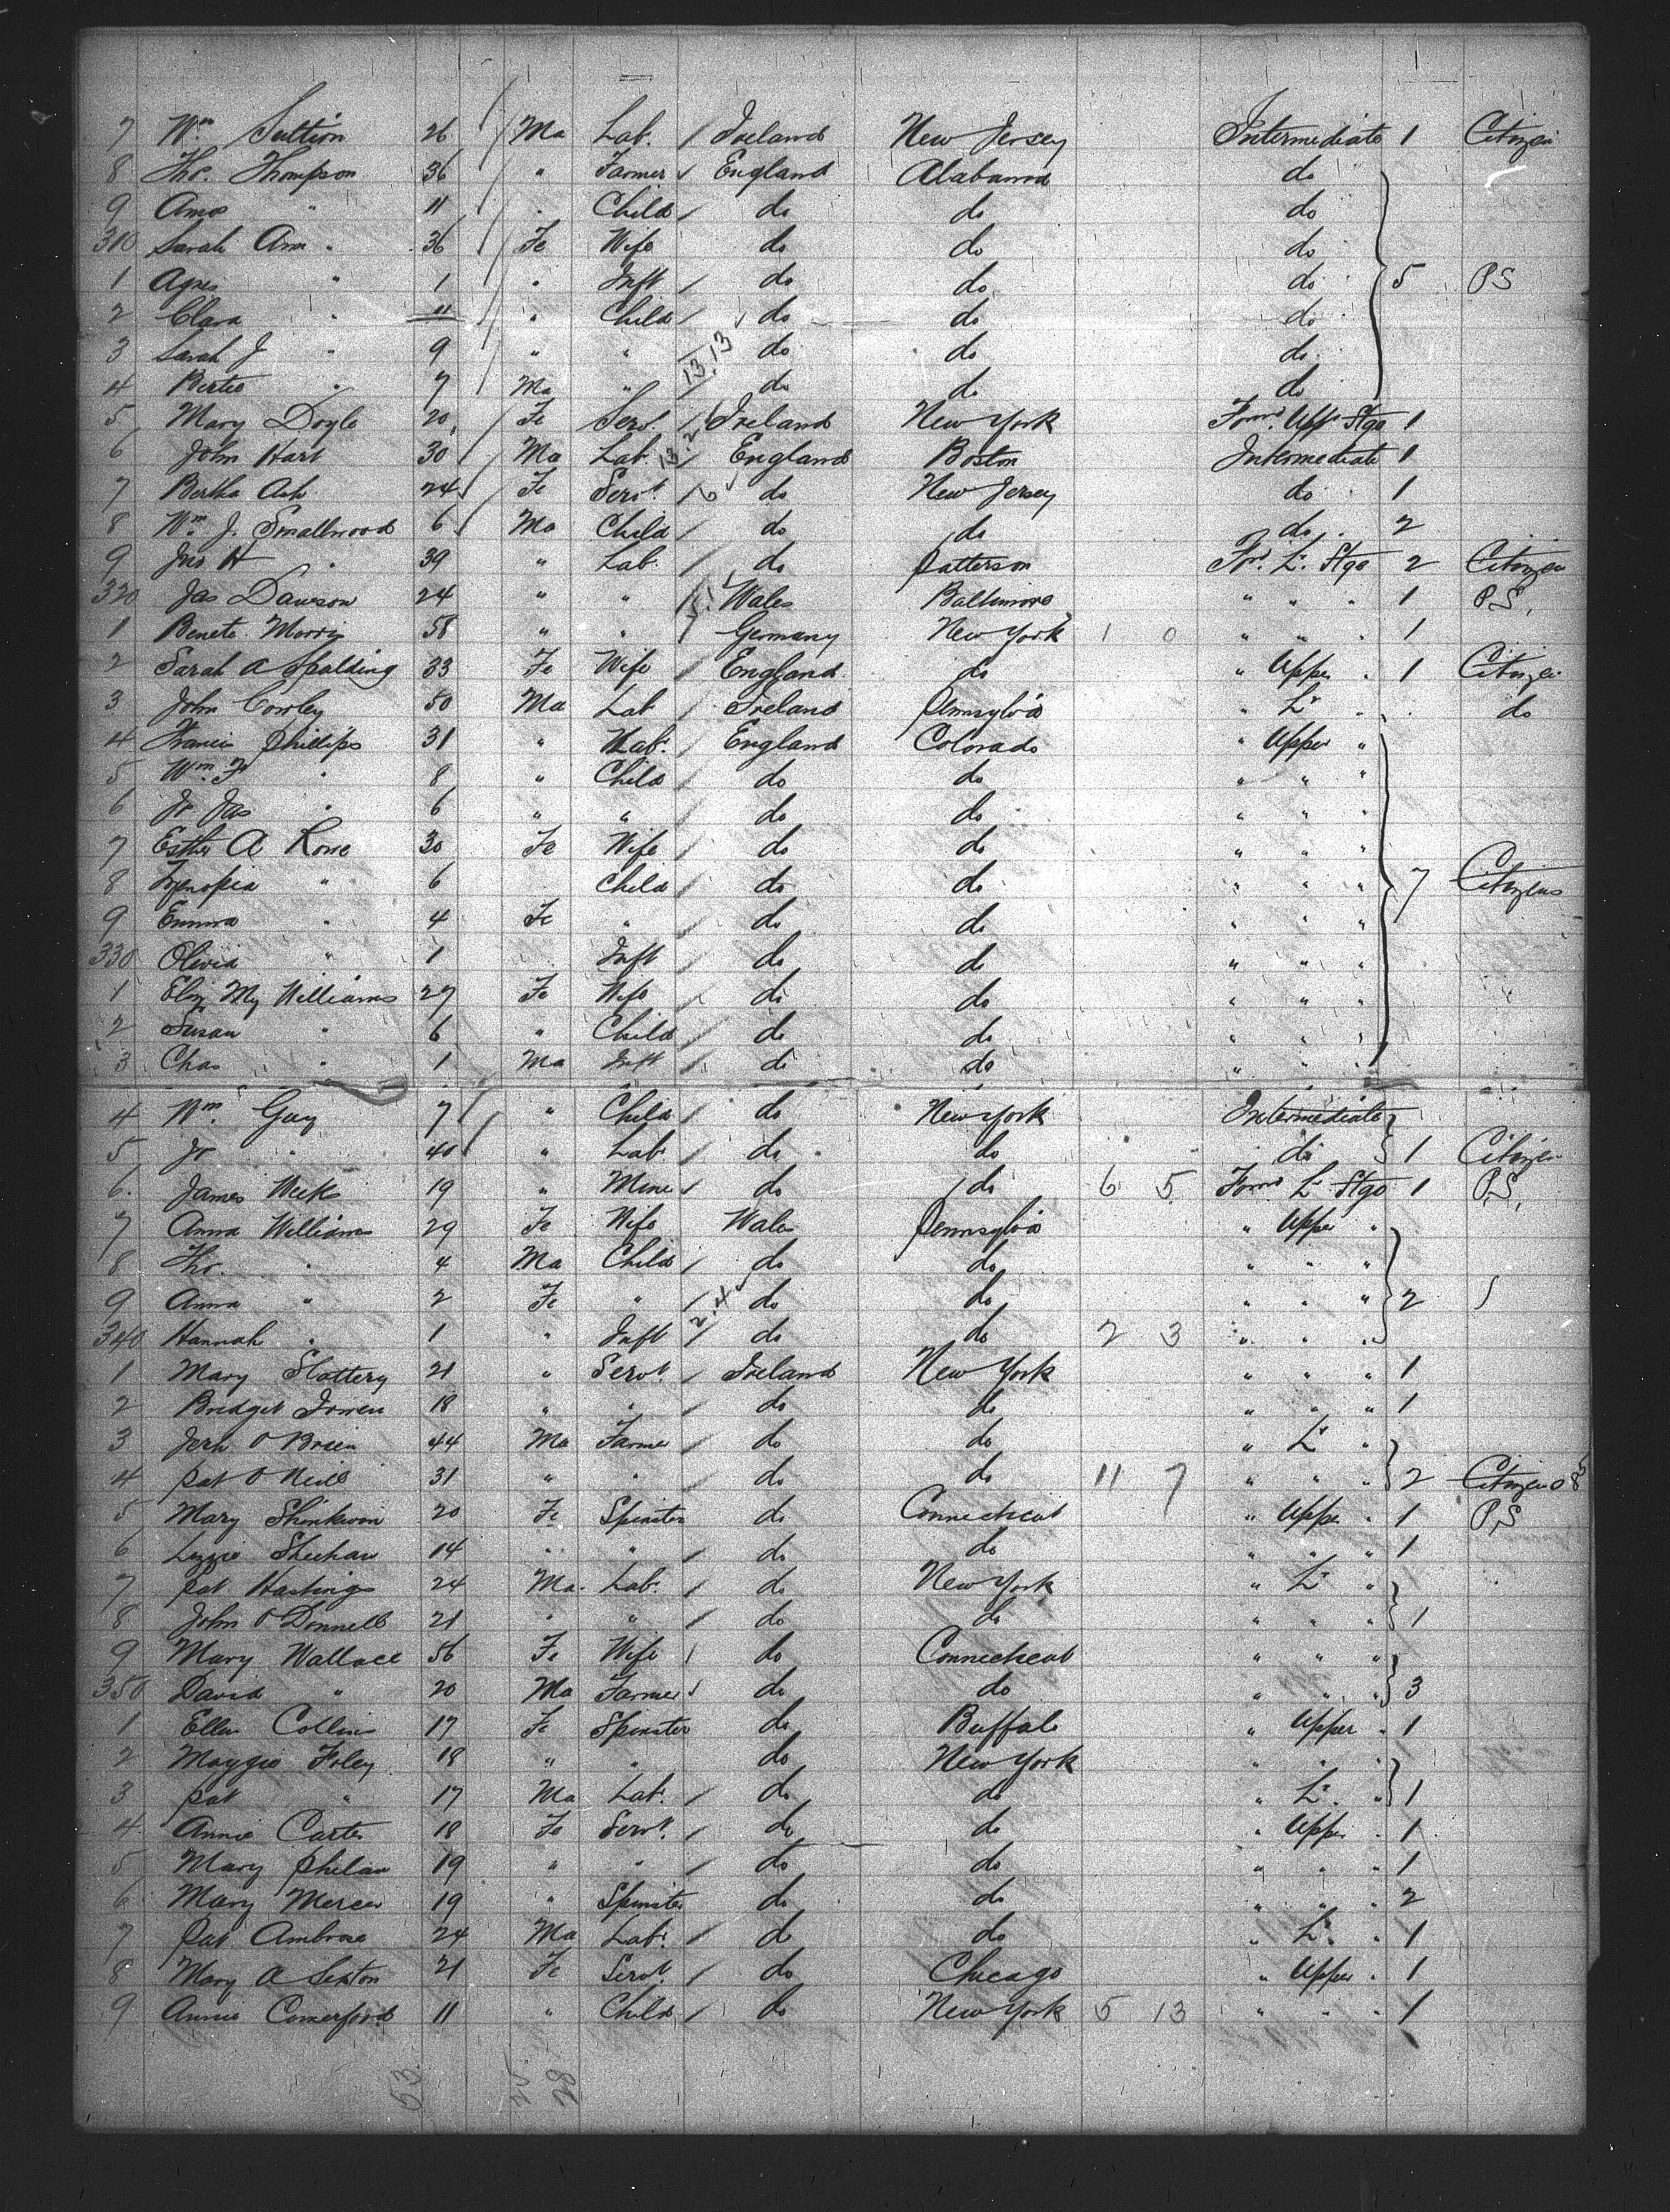 7 Wm Sutton 26 Ma Lab. Ireland New Jersey Intermediate 1 Citizen
8 Thos. Thompson 36 " Farmer England Alabama do
9 Amos " 11 " Child do do do
310 Sarah Ann " 36 Fe Wife do do do
1 Agnes " 1 " Inft do do do 5 PS
2 Clara " 11 " Child do do do
3 Sarah J " 9 " " 13.13 do do do
4 Bertie " 7 Ma " do do do
5 Mary Doyle 20 Fe Serv. Ireland New York Forwd. Upp. Stge 1
6 John Hart 30 Ma Lab. England Boston Intermediate 1
7 Bertha Ash 24 Fe Servt. do New Jersey do 1
8 Wm. J. Smallwood 6 Ma Child do do do 2
9 Jno H " 39 " Lab. do Patterson Fd. Lr. Stge 2 Citizen
320 Jas Dawson 24 " " Wales Baltimore " " " 1 P.S.
1 Benete Morris 58 " " Germany New York 1 0 " " " 1
2 Sarah A Spalding 33 Fe Wife England do " Upper " 1 Citizen
3 John Cowley 50 Ma Lab Ireland Pennsylva " Lr " do
4 Francis Phillips 31 " Lab. England Colorado " Upper "
5 Wm. F " 8 " Child do do " " "
6 Jr Jas " 6 " " do do " " "
7 Esther A Rowe 30 Fe Wife do do " " "
8 Zenopia " 6 Child do do " " " 7 Citizens
9 Emma " 4 Fe " do do " " "
330 Olivia " 1 Inft do do " " "
1 Eliz My Williams 27 Fe Wife do do " " "
2 Susan " 6 " Child do do " " "
3 Chas " 1 Ma Inft do do " " "
4 Wm. Guy 7 " Child do New York Intermediate
5 Jr " 40 " Lab. do do do 1 Citizen
6 James Weeks 19 " Miner do do 6 5 Forwd Lr Stge 1 P.S.
7 Anna Williams 29 Fe Wife Wales Pennsylva " Upper "
8 Thos. " 4 Ma Child do do " " "
9 Anna " 2 Fe " 2.4 do do " " " 2 S
340 Hannah " 1 " Inft do do 2 3 " " "
1 Mary Slattery 21 " Servt. Ireland New York " " " 1
2 Bridget 18 " " do do " " " 1
3 Jerh O Brien 44 Ma Farmer do do " Lr "
4 Pat O Neill 31 " " do do 11 7 " " " 2 Citizen
5 Mary Shinkwin 20 Fe Spinster do Connecticut " Upper " 1 P.S
6 Lizzie Sheehan 14 " " do do " " " 1
7 Pat Hastings 24 Ma Lab. do New York " Lr "
8 John O Donnell 21 " " do do " " " 1
9 Mary Wallace 56 Fe Wife do Connecticut " " "
350 David " 20 Ma Farmer do do " " " 3
1 Ellen Collins 17 Fe Spinster do Buffalo " Upper " 1
2 Maggie Foley 18 " " do New York " " "
3 Pat " 17 Ma Lab. do do " Lr. " 1
4 Annie Carter 18 Fe Servt. do do " Upper " 1
5 Mary Phelan 19 " " do do " " " 1
6 Mary Mercer 19 " Spinster do do " " " 2
7 Pat Ambrose 24 Ma Lab. do do " Lr. " 1
8 Mary A Sexton 21 Fe Servt. do Chicago " Upper " 1
9 Annie Comerford 11 " Child do New York 5 13 " " " 1
53 25 28